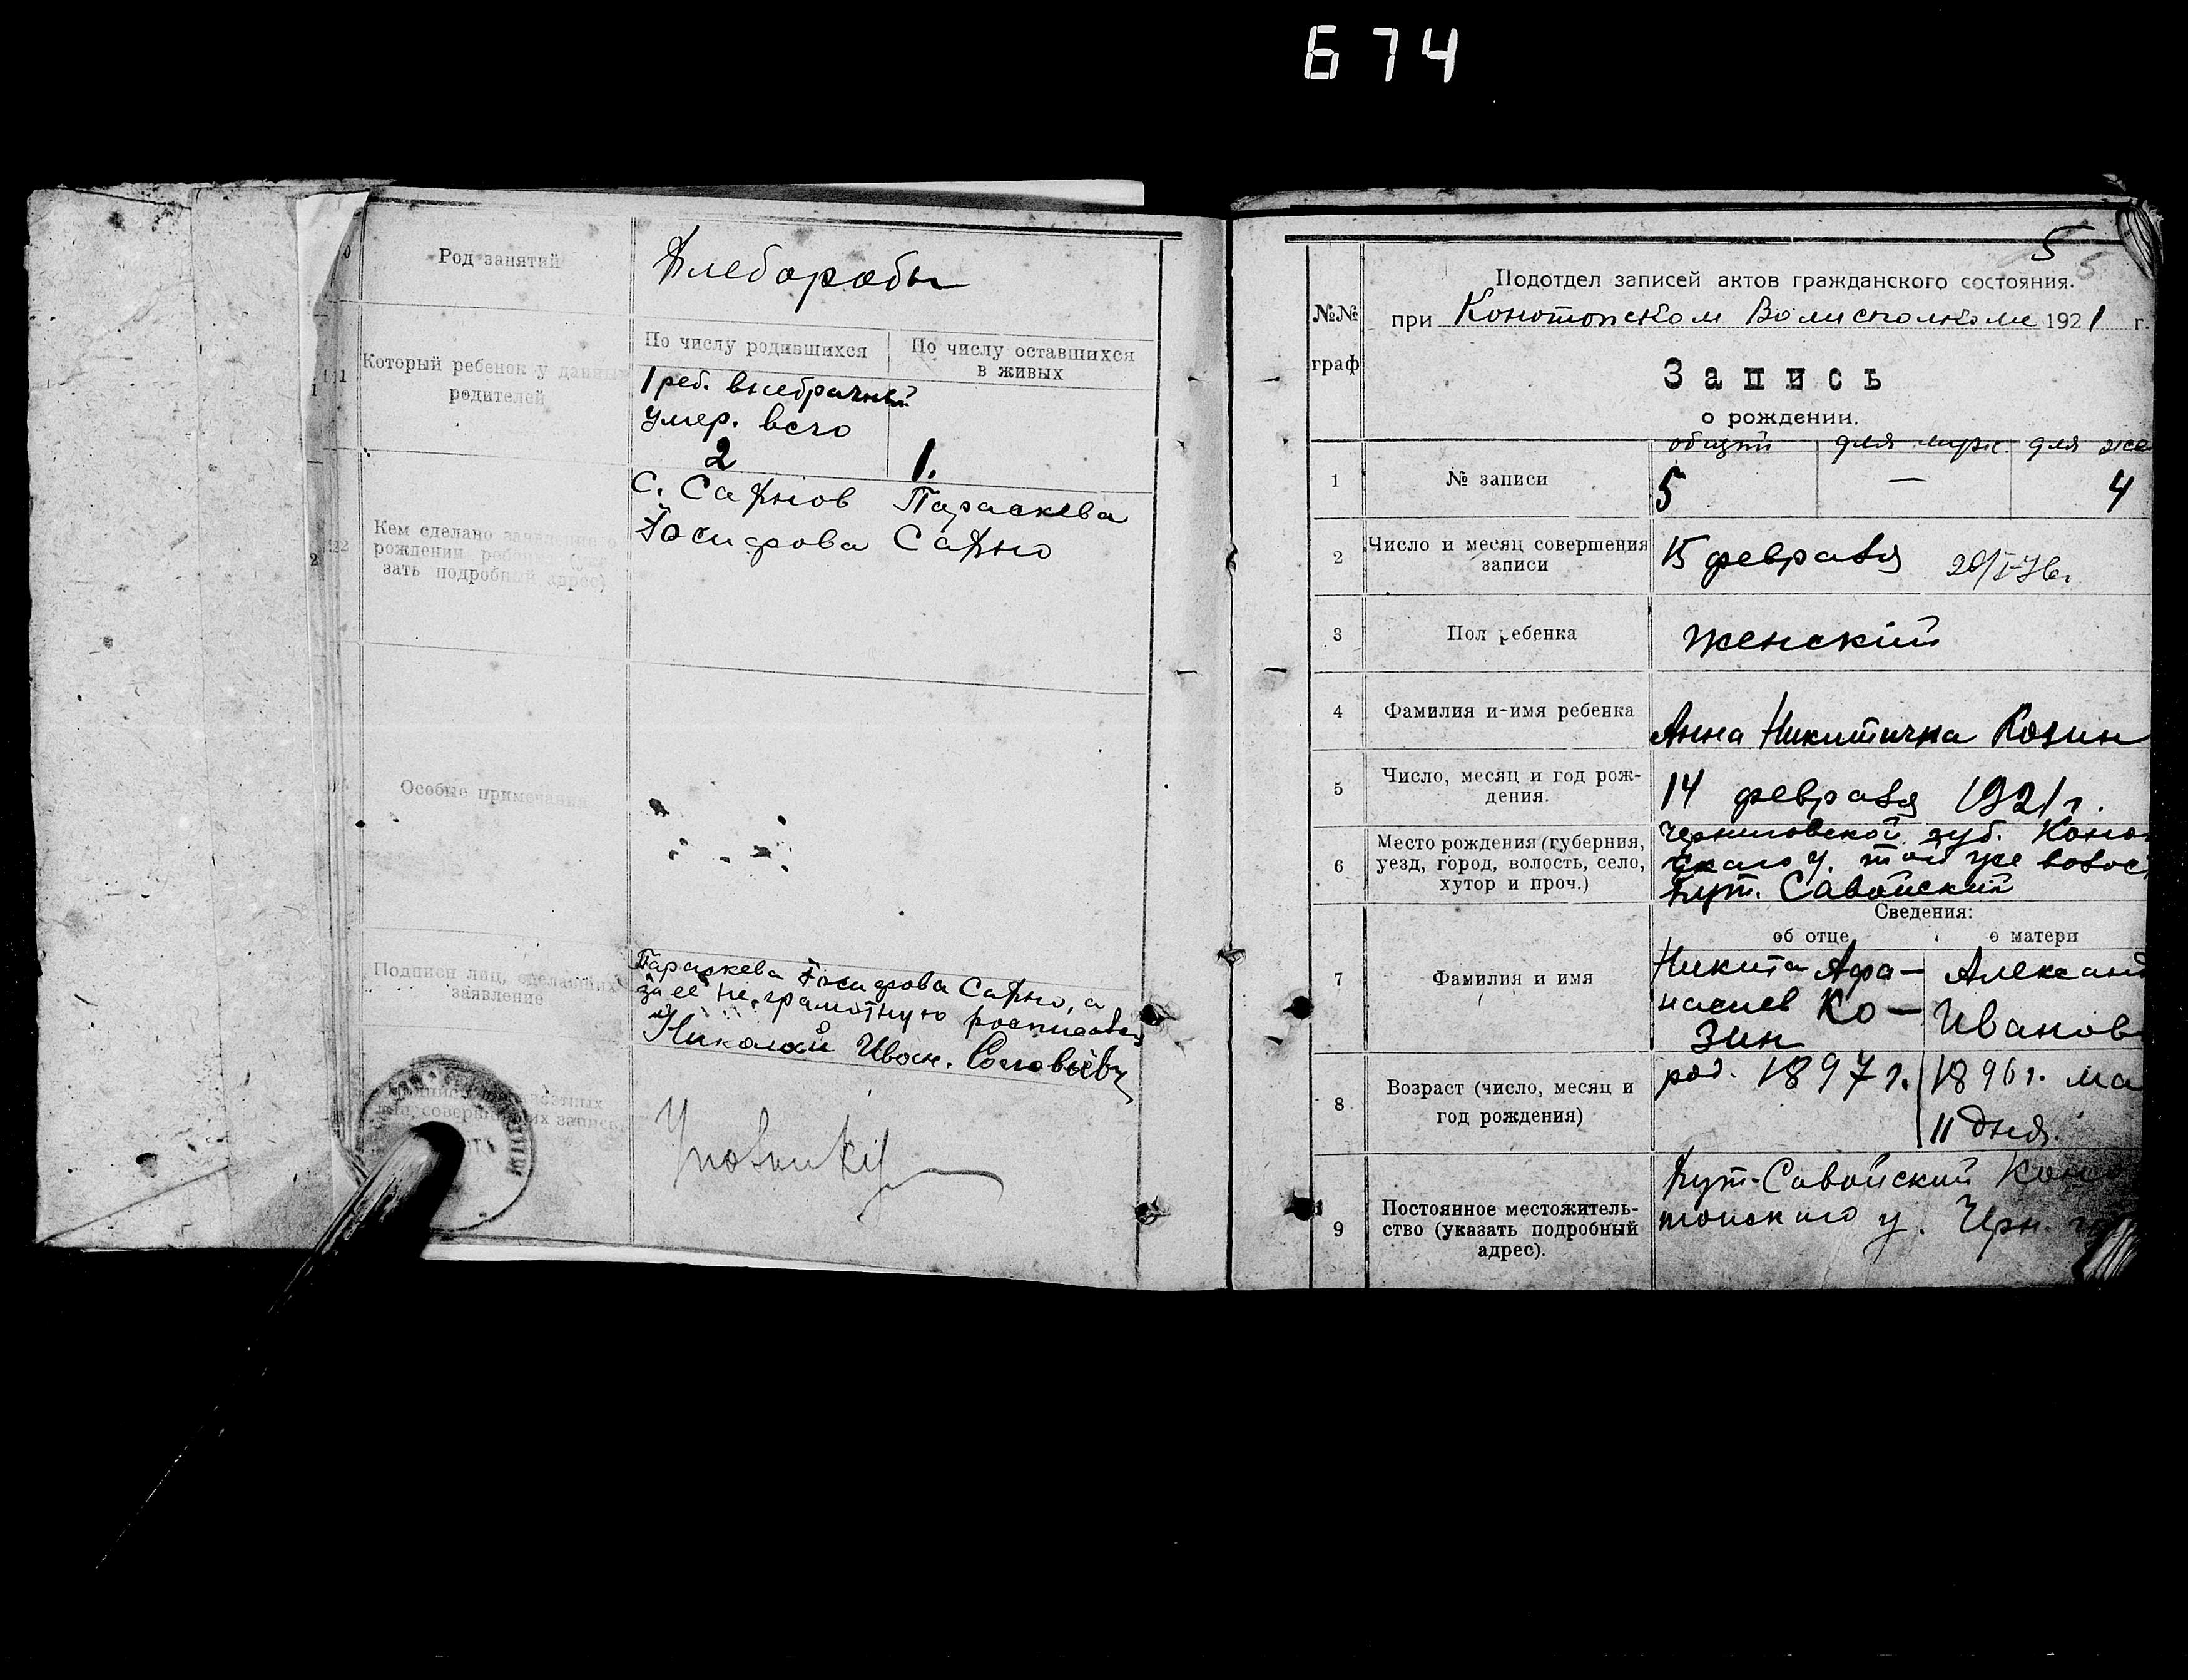 674
Род занятий
Хлеборобы
Который ребенок у данных родителей
По числу родившихся
По числу оставшихся в живых
1 реб. внебрачный
умер. всего
2
1.
Кем сделано заявление о
рождении ребенка (ука-
зать подробный адрес)
с. Сахнов Параскева
Иосифова Сахно
Особые примечания
Подписи лиц, сделавших
заявление
Параскева Иосифова Сахно, а
за ее не грамотную росписався
Николай Иван.
5
5
Подотдел записей актов гражданского состояния.
№№
граф
при Конотопском Волисполкоме 1921 г.
Запись
о рождении.
общий для муж. для же
1 № записи 5 — 4
2 Число и месяц совершения
записи
15 февраля
3 Пол ребенка женскій
4 Фамилия и-имя ребенка
Анна Никитична Козин
5 Число, месяц и год рож-
дения.
14 февраля 1921 г.
6 Место рождения (губерния,
уезд, город, волость, село,
хутор и проч.)
Черниговской губ. Коно
скаго у. той же волос
Хут. Савойский
Сведения:
об отце о матери
7 Фамилия и имя
Никита Афа-
насиев Ко-
зин
Александ
Иванов
8 Возраст (число, месяц и
год рождения)
род. 1897 г.
1896 г. ма
11 дня.
9 Постоянное местожитель-
ство (указать подробный
адрес).
Хут-Савойский Коно
топскаго у. Черн.